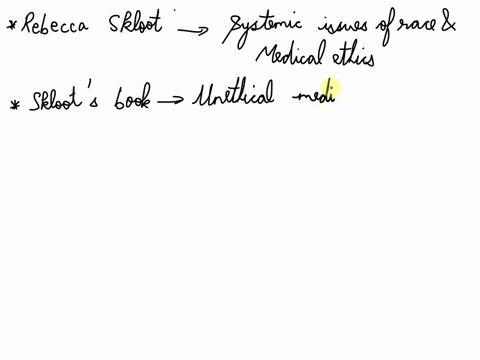 * Rebecca Skloot → Systemic issues of race &
Medical ethics
* Skloot's book → Unethical medi